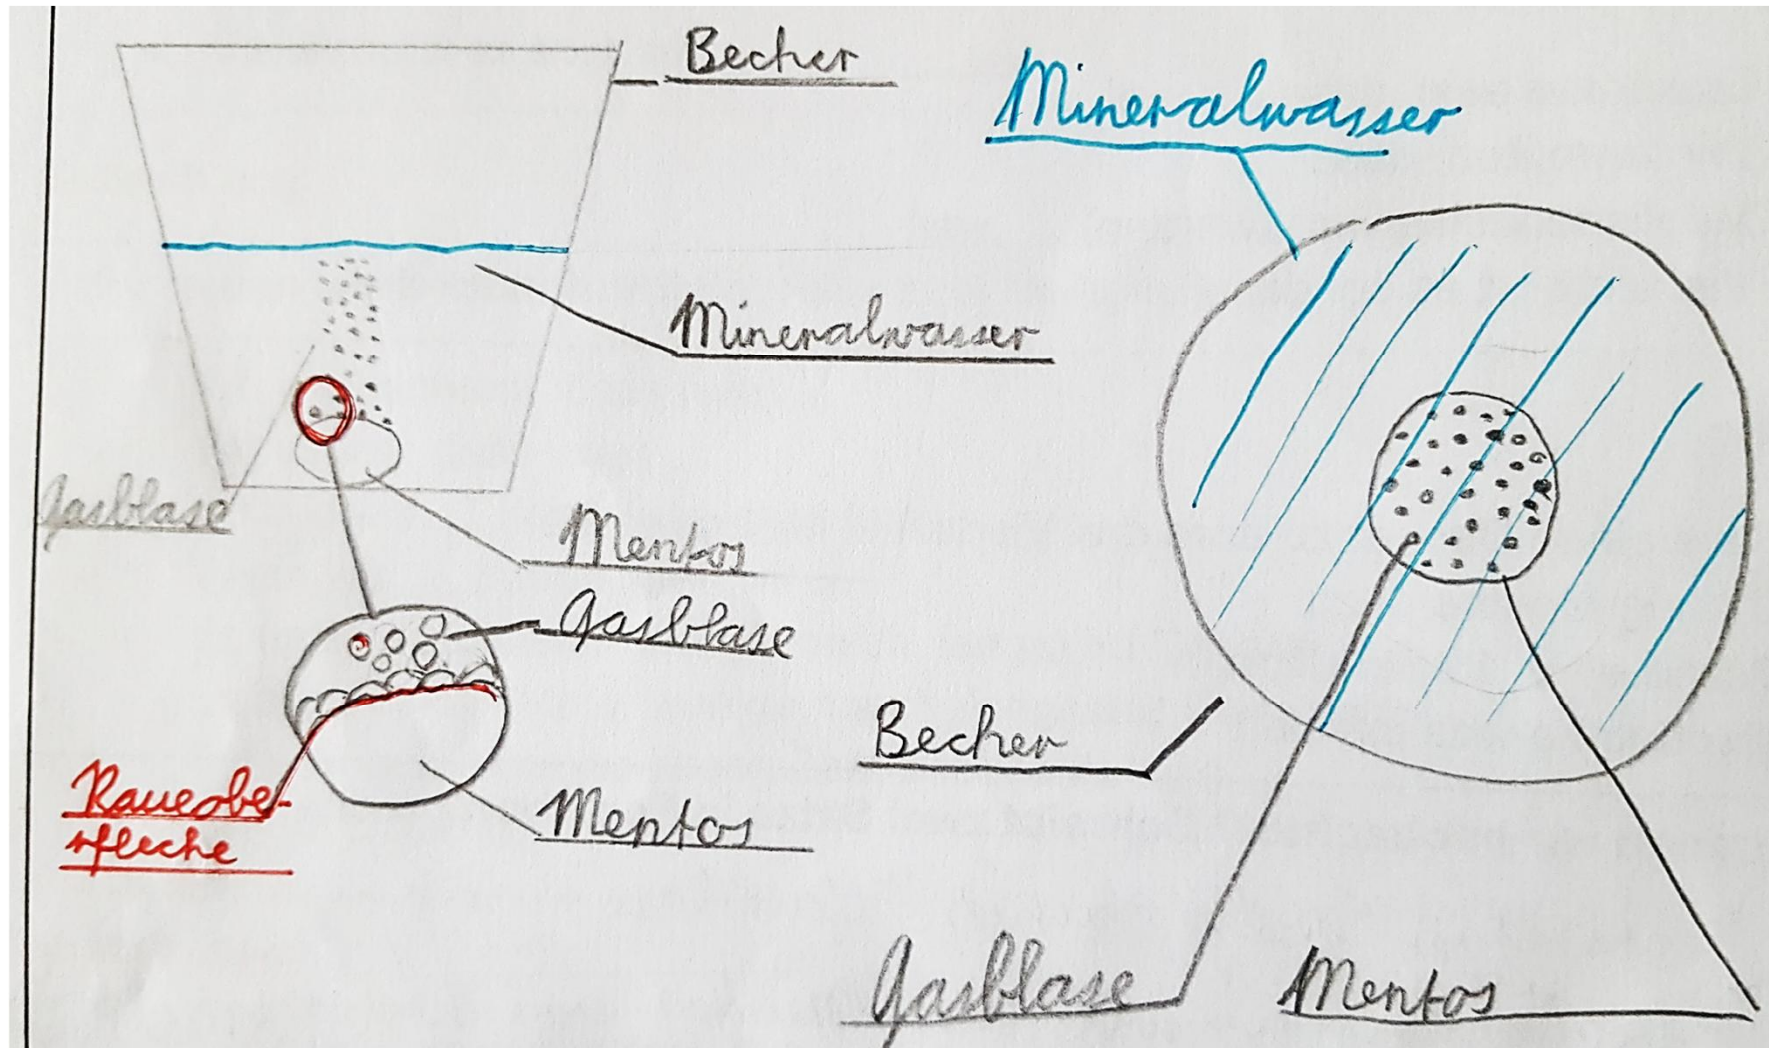 Becher
Mineralwasser
Mineralwasser
Gasblase
Mentos
Gasblase
Raueobe-
rfleche
Mentos
Becher
Gasblase
Mentos